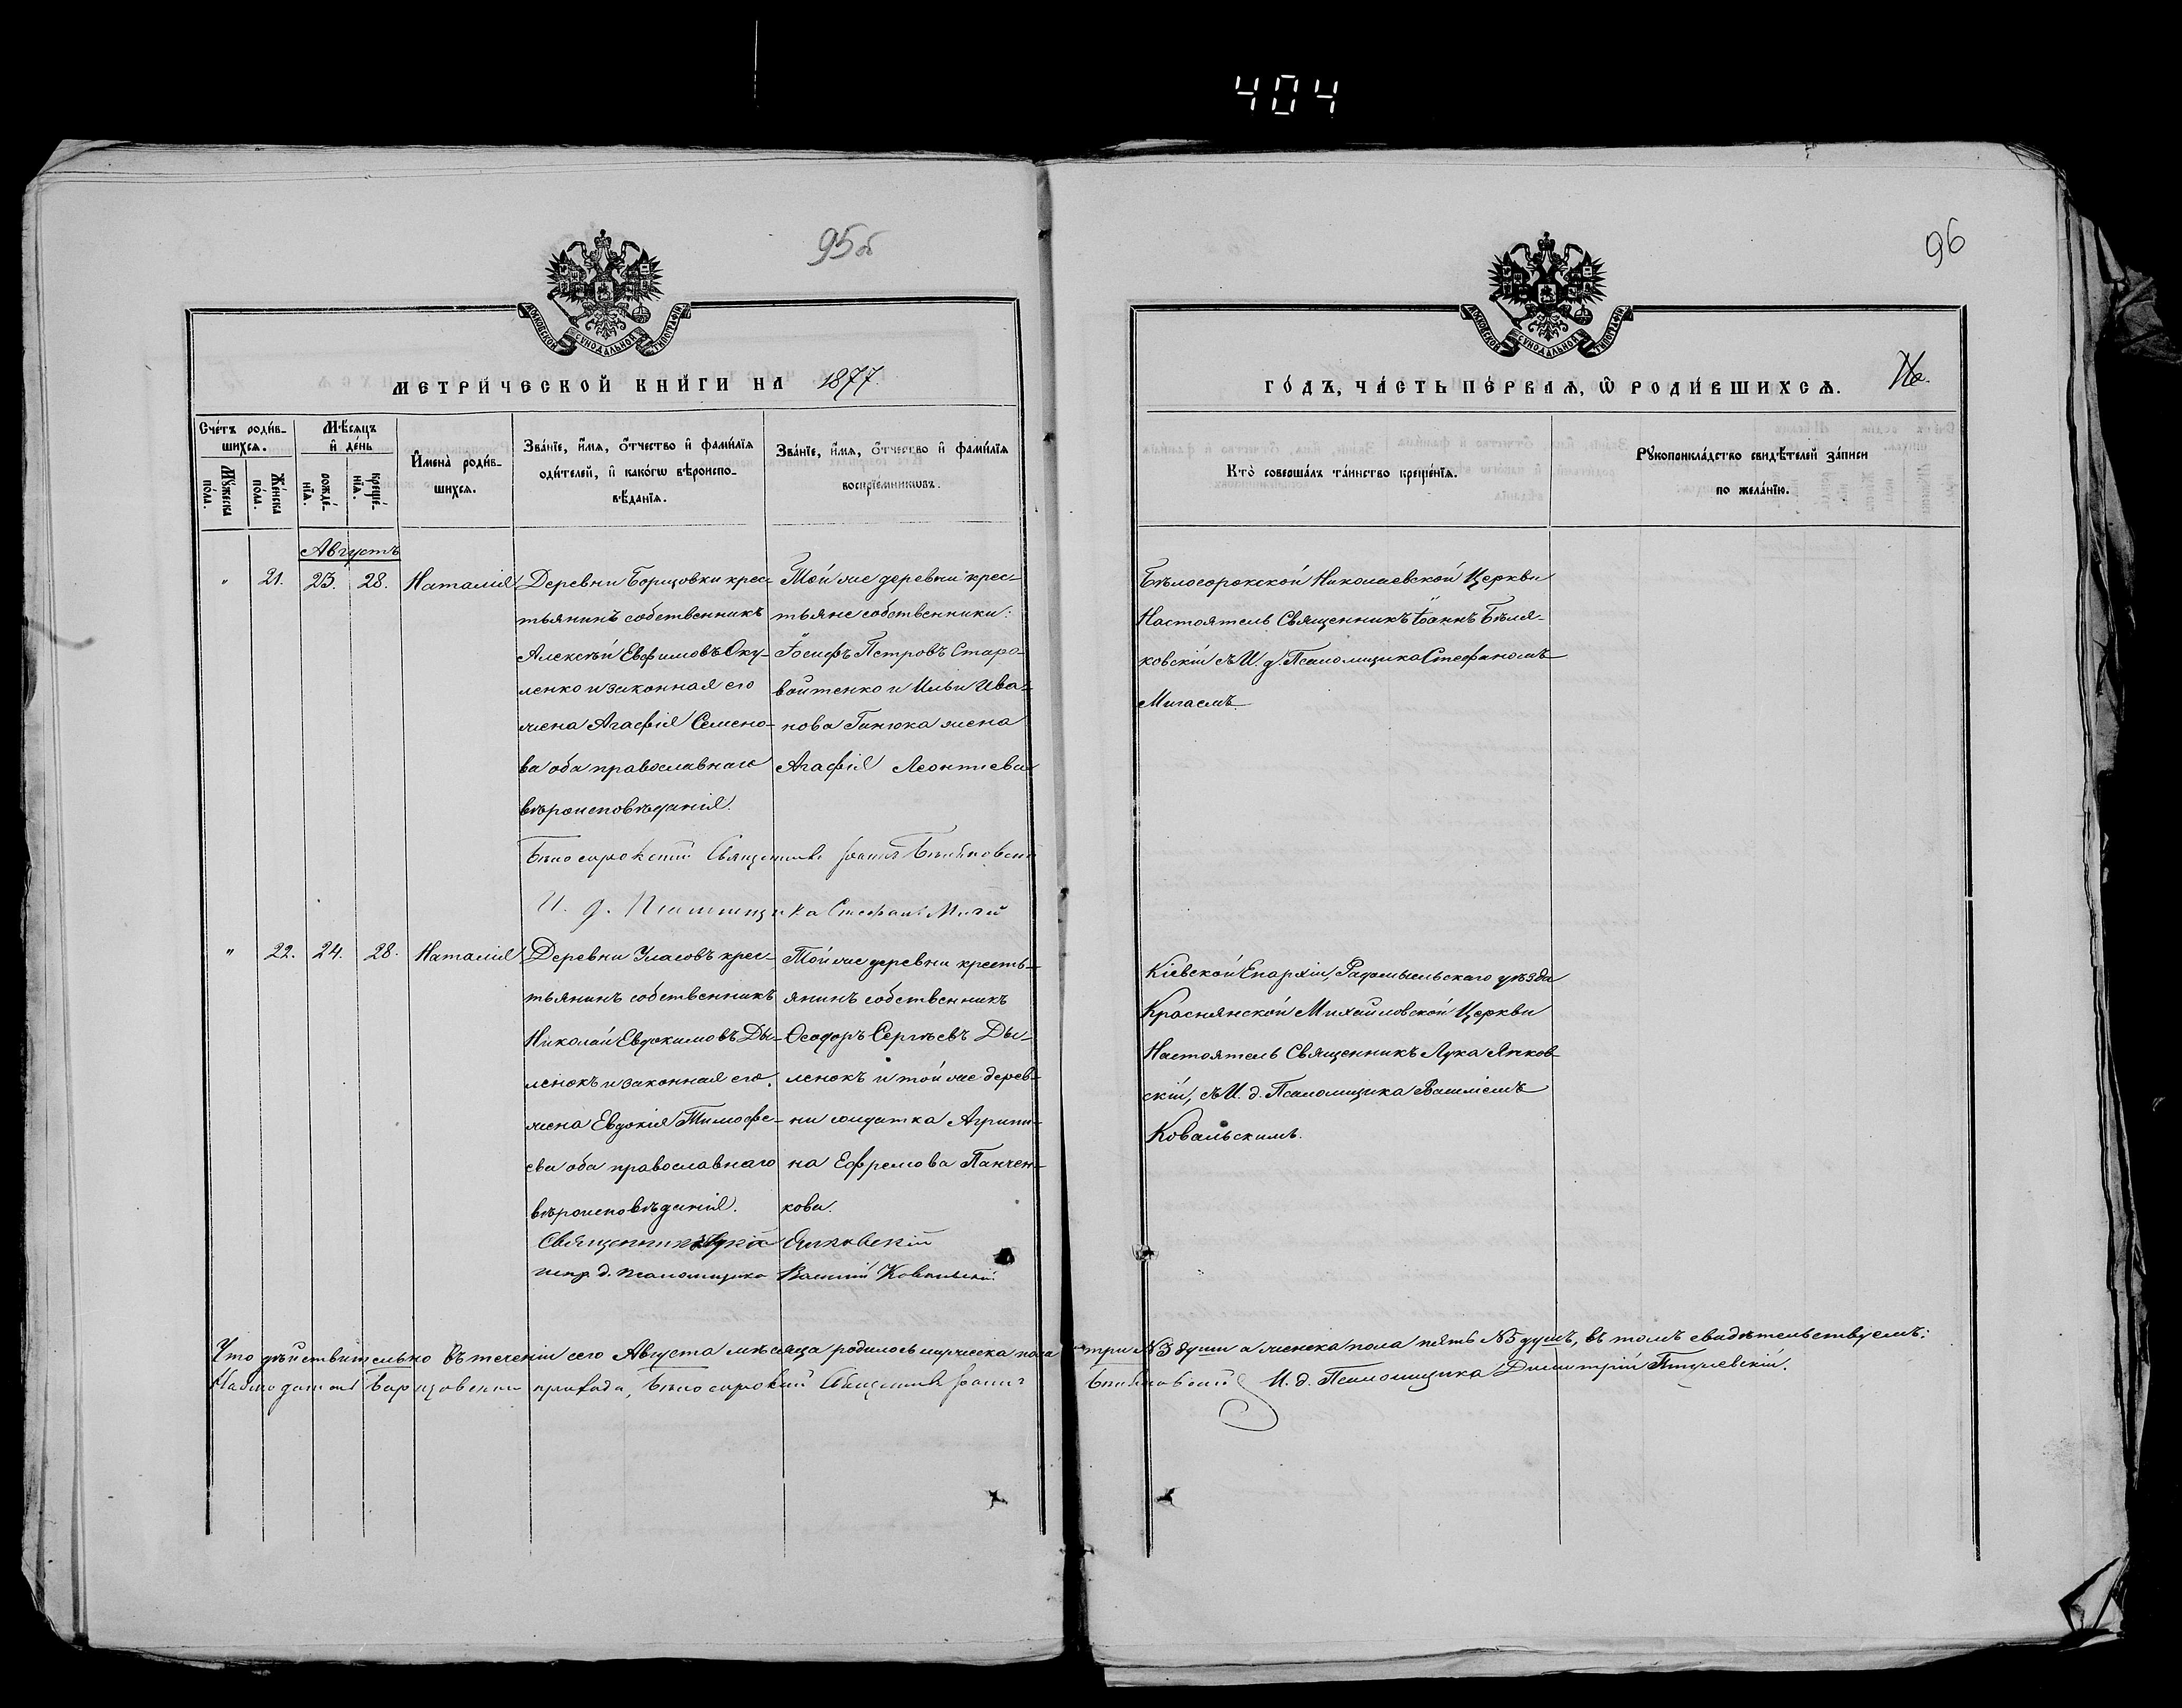 404
95об
96
МОСКОВСКОЙ СѴНОДАЛЬНОЙ ТИПОГРАФІИ
МОСКОВСКОЙ СѴНОДАЛЬНОЙ ТИПОГРАФІИ
МЕТРИ́ЧЕСКОЙ КНИ́ГИ НА 1877.
ГО́ДЪ, ЧА́СТЬ ПЕ́РВАѦ, Ѽ РОДИ́ВШИХСѦ.
Сче́тъ роди́в-
шихсѧ.
Мꙋ́жеска
по́ла.
Же́нска
по́ла.
Мѣ́сѧцъ
и҆ де́нь
рожде́-
нїѧ.
креще́-
нїѧ.
И҆мена̀ роди́в-
шихсѧ.
Зва́нїе, и҆́мѧ, ѻ҆́тчество и҆ фами́лїѧ
роди́телей, и҆ како́гѡ вѣроиспо-
вѣ́данїѧ.
Зва́нїе, и҆́мѧ, ѻ҆́тчество и҆ фами́лїѧ
воспрїе́мникѡвъ.
Кто̀ соверша́лъ та́инство креще́нїѧ.
Рꙋкоприкла́дство свидѣ́телей за́писи
по жела́нїю.
Августъ
" 21. 23. 28. Наталія
Деревни Борщовки крес-
тьянинъ собственникъ
Алексѣй Евфимовъ Оку-
ленко и законная его
жена Агафія Семено-
ва оба православнаго
вѣроисповѣданія.
Той же деревни крес-
тьяне собственники:
Іосифъ Петровъ Старо-
войтенко и Ильи Ива-
нова Ганюка жена
Агафія Леонтіева
Бѣлосорокской Николаевской Церкви
Настоятель Священникъ Іоаннъ Бѣля-
ковскій съ И. д. Псаломщика Стефаномъ
Мигаемъ.
Бѣлосорокскій Священникъ Іоаннъ Бѣляковскій
И. д. Псаломщика Стефанъ Мигай
" 22. 24. 28. Наталія
Деревни Уласовъ крес-
тьянинъ собственникъ
Николай Евдокимовъ Ды-
ленокъ и законная его
жена Евдокія Тимофе-
ева оба православнаго
вѣроисповѣданія.
Той же деревни кресть-
янинъ собственникъ
Ѳеодоръ Сергѣевъ Ды-
ленокъ и той же дерев-
ни солдатка Агрипи-
на Ефремова Панчен-
кова.
Кіевской Епархіи, Радомысльскаго уѣзда
Краснянской Михайловской Церкви
Настоятель Священникъ Лука Янков-
скій, съ И. д. Псаломщика Василіемъ
Ковальскимъ.
Священникъ Лука Янковскій
испр. д. псаломщика Василій Ковальскій
Что дѣйствительно въ теченіи сего Августа мѣсяца родилось мужеска пола три №3 души а женска пола пять №5 душъ, въ томъ свидѣтельствуемъ:
Борщовскаго прихода, Бѣлосорокскій Священникъ Іоаннъ Бѣляковскій И. д. Псаломщика Димитрій